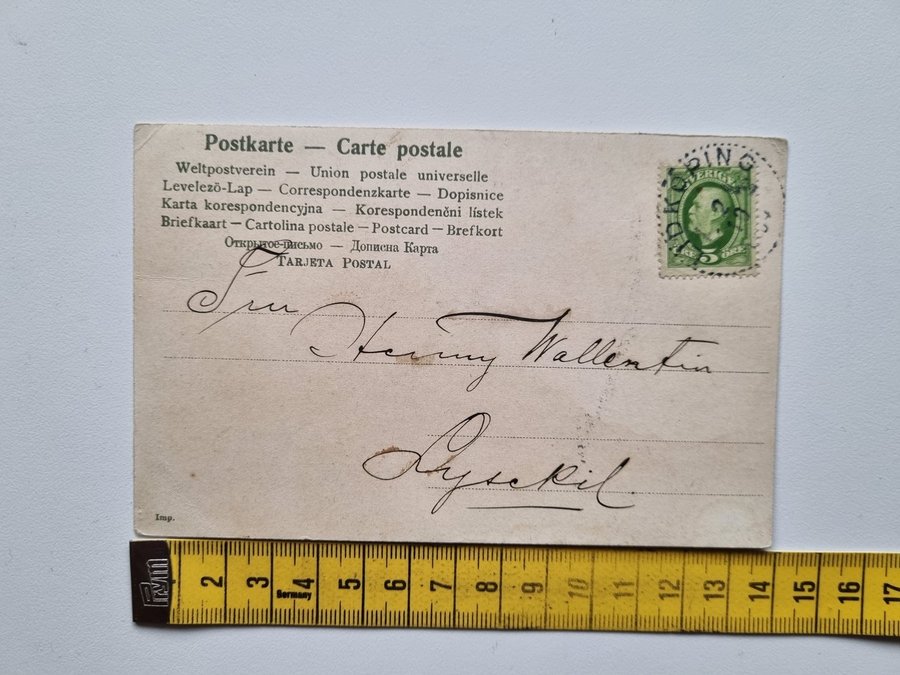 Postkarte — Carte postale
Weltpostverein — Union postale universelle
Levelező-Lap — Correspondenzkarte — Dopisnice
Karta korespondencyjna — Korespondenční lístek
Briefkaart — Cartolina postale — Postcard — Brefkort
Открытое письмо — Дописна Карта
Tarjeta Postal
LIDKÖPING
SVERIGE
5
Fru
Henny Wallentin
Lysekil.
Imp.
2 3 4 5 6 7 8 9 10 11 12 13 14 15 16 17
Germany